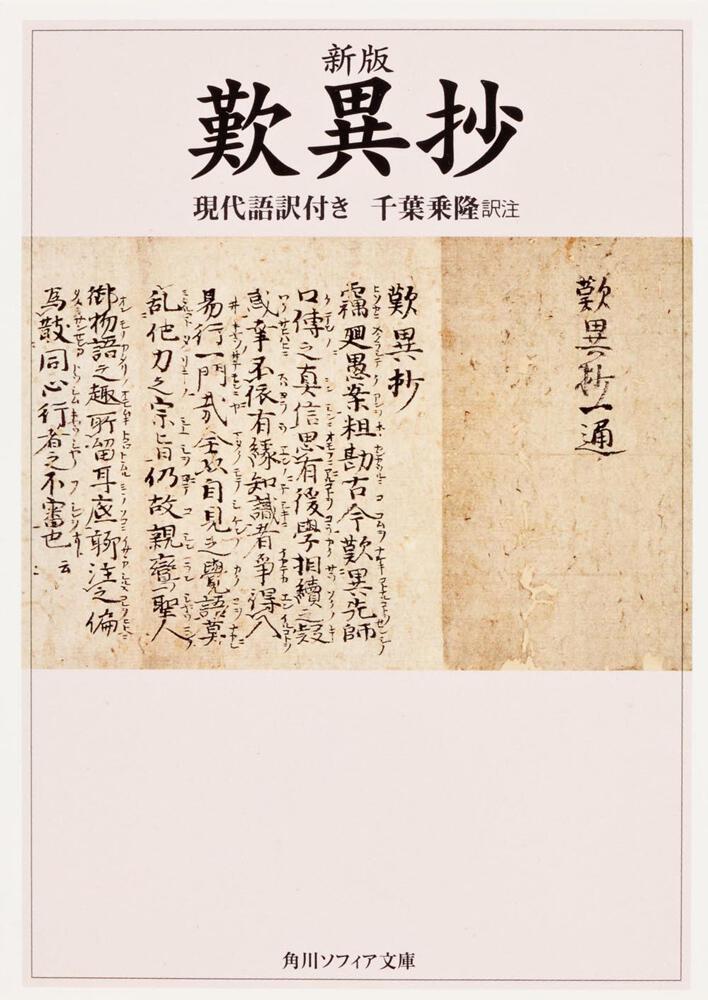 新版
歎異抄
現代語訳付き 千葉乗隆訳注
歎異抄一通
歎異抄
竊廻愚案粗勘古今歎異先師
口傳之真信思有後學相續之疑
或幸不依有縁知識者爭得入
易行一門哉全以自見之覺語莫
乱他力之宗旨仍故親鸞聖人
御物語之趣所留耳底聊注之偏
為散同心行者之不審也云
角川ソフィア文庫